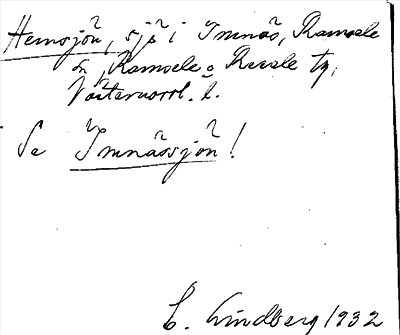 Hemsjön, sjö i Imnäs, Ramsele
sn, Ramsele o Resele tg,
Västernorrl. l.
Se Imnässjön!
C. Lindberg 1932